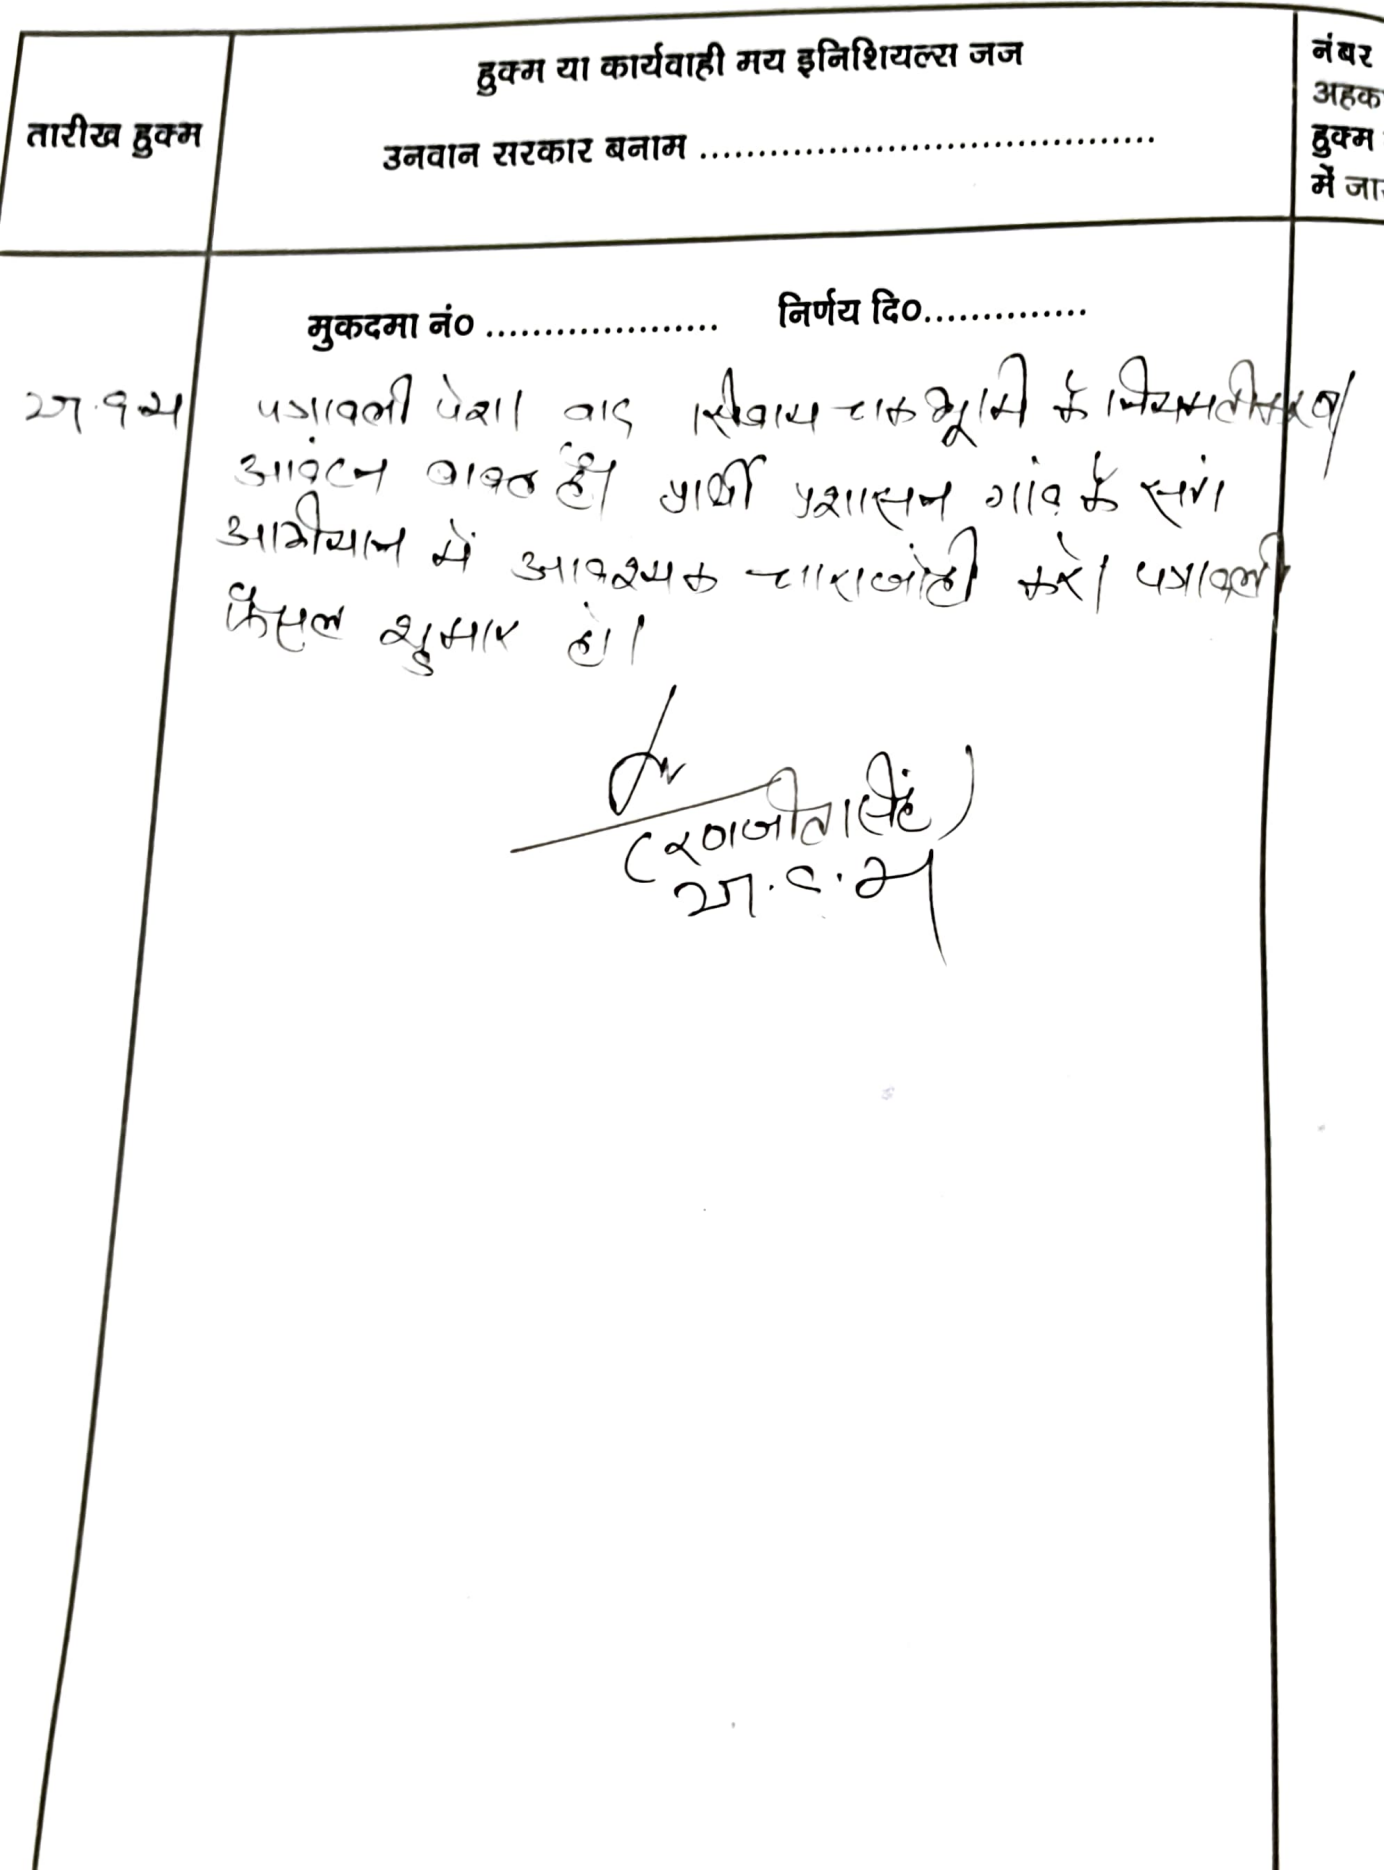 हुक्म या कार्यवाही मय इनिशियल्स जज
तारीख हुक्म
उनवान सरकार बनाम ........................................
नंबर
अहक
हुक्म
में जा
मुकदमा नं० .................... निर्णय दि०..............
पत्रावली पेश। वाद सिवाय चक भूमि के नियमतीकरण/
आवंटन बाबत है। प्रार्थी प्रशासन गांव के संग
अभीयान में आवश्यक चाराजोही करे। पत्रावली
फैसल शुमार हो।
(रणजीत सिंह)